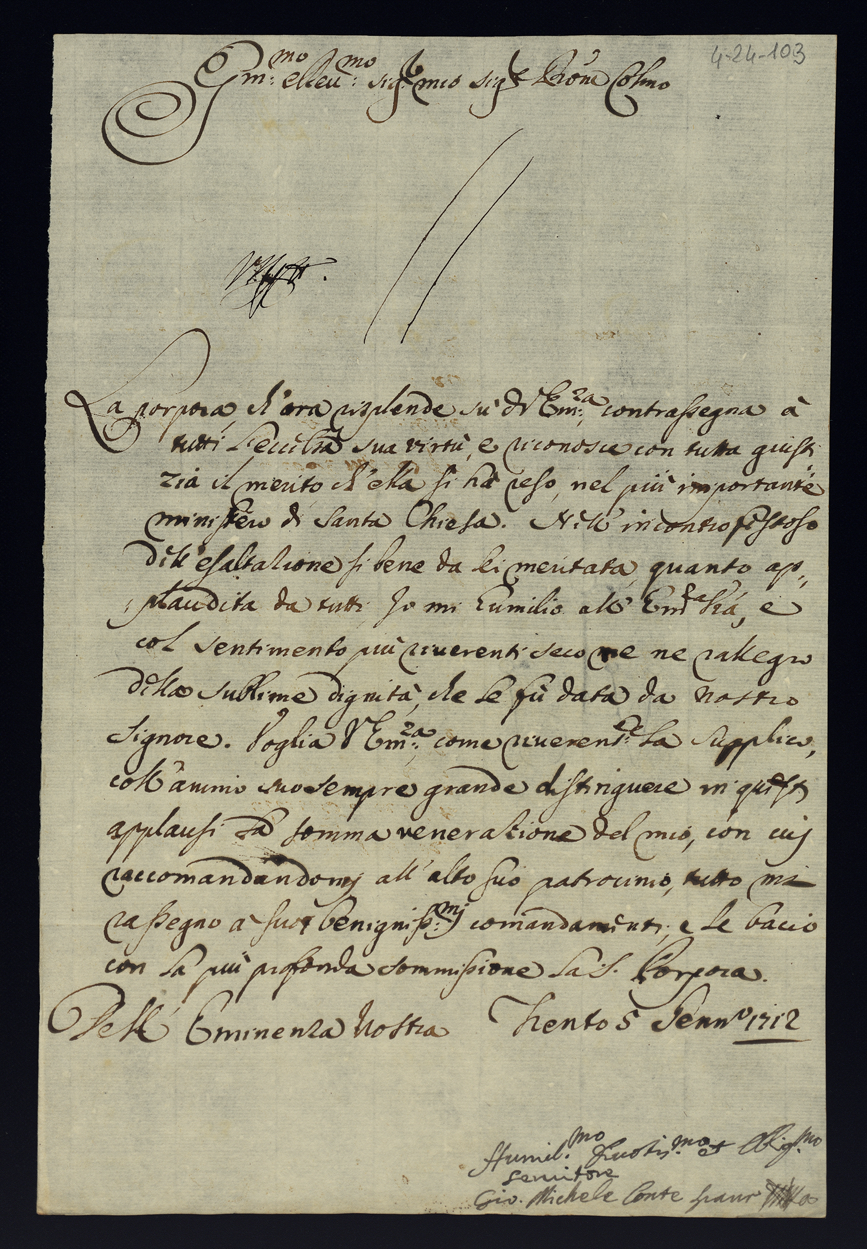 4-24-103
Em:mo e Reu:mo sig.r mio sig.r Pròne Colmo
La porpora, ch'ora risplende sù di V Em:za, contrassegna à
tutti l'eccelsa sua virtù, e riconosce con tutta giusti
zia il merito ch'ella si hà reso, nel più importante
ministero di Santa Chiesa. Nell'incontro festoso
dell'esaltazione si bene da lei meritata, quanto ap,,
,,plaudita da tutti Io mi humilio all'Em:za Vra, e
col sentimento più riuerenti seco me ne rallegro
della sublime dignità, che le fù data da Nostro
Signore. Voglia V Em:za, come riueren:te la supplico,
coll'animo suo sempre grande distinguere in questi
applausi la somma venerazione del mio, con cuj
raccomandandomj all'alto suo patrocinio, tutto mi
rassegno a suoi benigniss:mj comandamenti, e le bacio
con la più profonda sommissione la S. Porpora.
Dell'Eminenza Vostra Trento 5 Genn.o 1712
Humil.mo Diuotis.mo et Oblig.mo
seruitore
Gio. Michele Conte Spaur